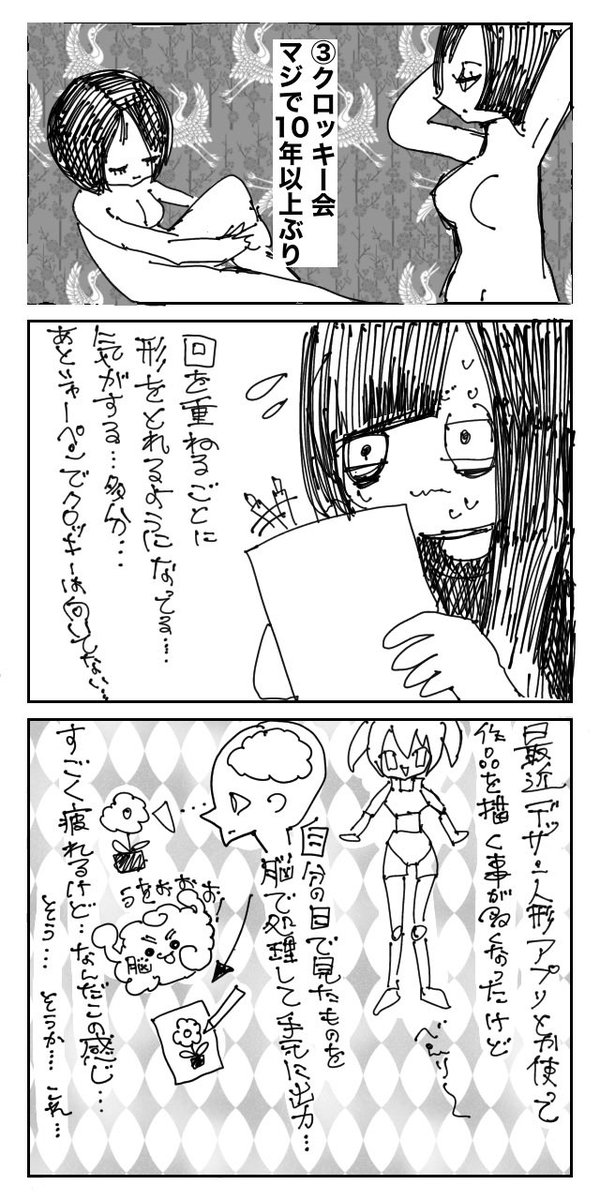 ③クロッキー会
マジで10年以上ぶり
回を重ねるごとに
形をとれるようになってる…
気がする…多分…
あとシャーペンでクロッキーは向いてない…
最近デッサン人形アプリとか使って
作品を描く事が多くなったけど
べんりー
自分の目で見たものを
脳で処理して手元に出力…
うをおおお!
脳
すごく疲れるけど…なんだこの感じ…
そう… そうか… これ…